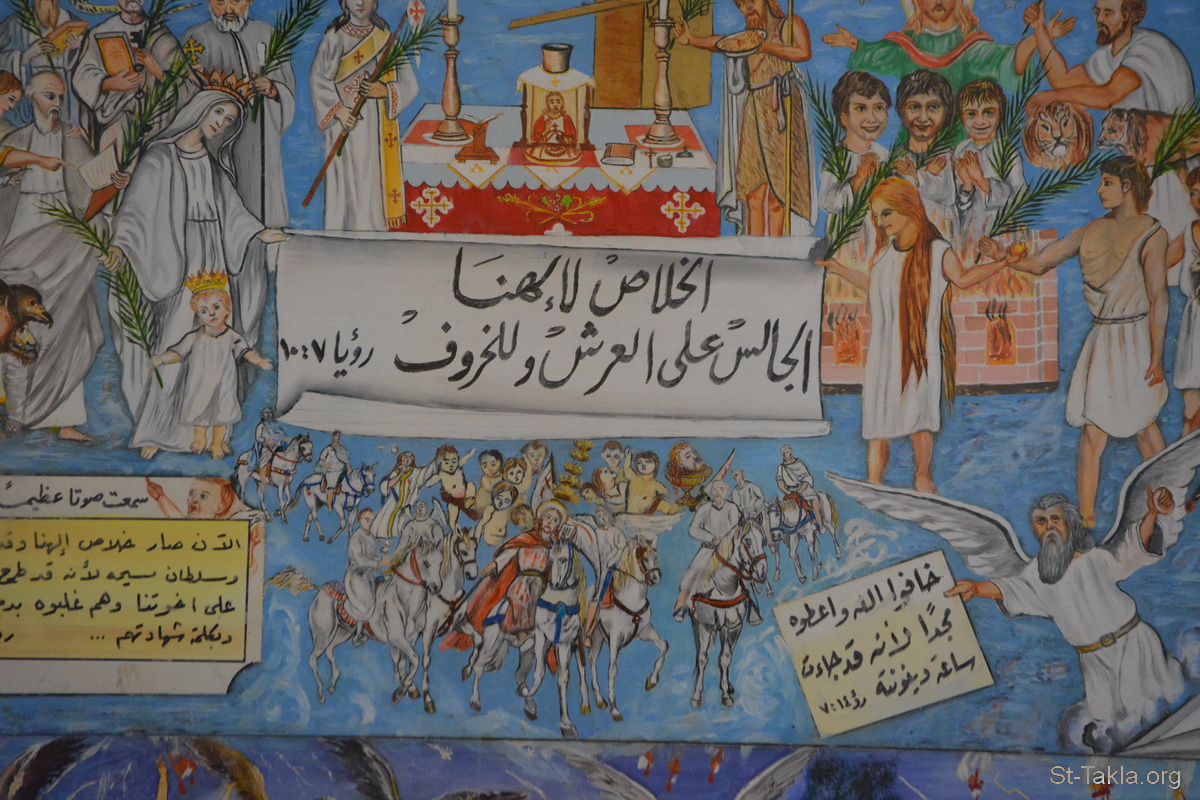 الخلاص لإلهنا
الجالس على العرش وللخروف رؤيا ٧:١٠
سمعت صوتا عظيماً
الآن صار خلاص إلهنا
وسلطان مسيحه لأنه قد طرح
على اخوتنا وهم غلبوه
وبكلمة شهادتهم ...
خافوا الله واعطوه
مجدًا لأنه قد جاءت
ساعة دينونتة رؤ١٤:٧
St-Takla.org